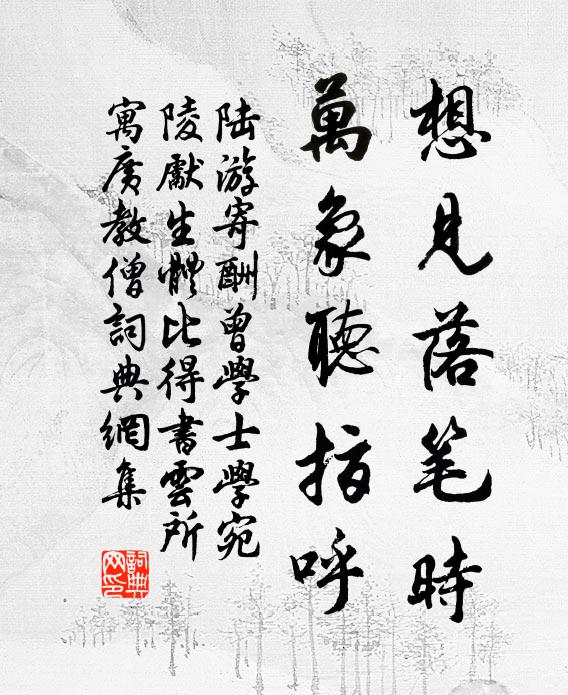 想見落笔時
萬象聽指呼
陆游寄酬曾學士學宛
陵獻生體比得書雲所
寓廣教僧詞典網集
詞典
网印